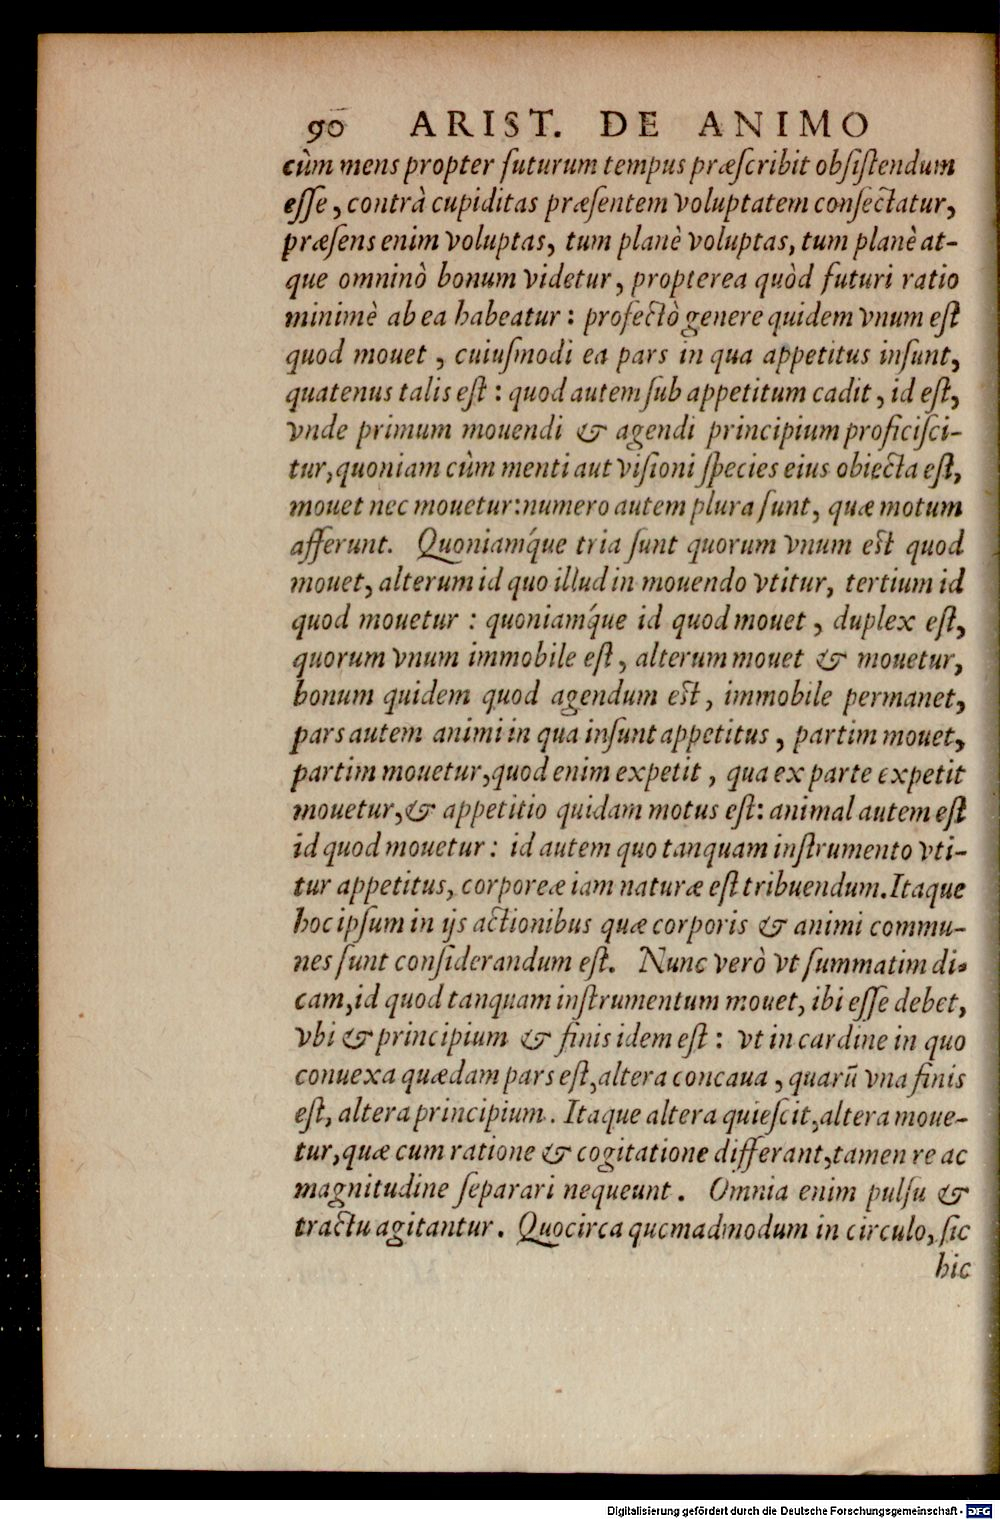 90 ARIST. DE ANIMO
cùm mens propter futurum tempus præscribit obsistendum
esse, contrà cupiditas præsentem voluptatem consectatur,
præsens enim voluptas, tum planè voluptas, tum planè at-
que omninò bonum videtur, propterea quòd futuri ratio
minimè ab ea habeatur: profectò genere quidem vnum est
quod mouet, cuiusmodi ea pars in qua appetitus insunt,
quatenus talis est: quod autem sub appetitum cadit, id est,
vnde primum mouendi & agendi principium proficisci-
tur, quoniam cùm menti aut visioni species eius obiecta est,
mouet nec mouetur: numero autem plura sunt, quæ motum
afferunt. Quoniamq́ue tria sunt quorum vnum est quod
mouet, alterum id quo illud in mouendo vtitur, tertium id
quod mouetur: quoniamq́ue id quod mouet, duplex est,
quorum vnum immobile est, alterum mouet & mouetur,
bonum quidem quod agendum est, immobile permanet,
pars autem animi in qua insunt appetitus, partim mouet,
partim mouetur, quod enim expetit, qua ex parte expetit
mouetur, & appetitio quidam motus est: animal autem est
id quod mouetur: id autem quo tanquam instrumento vti-
tur appetitus, corporeæ iam naturæ est tribuendum. Itaque
hoc ipsum in ijs actionibus quæ corporis & animi commu-
nes sunt considerandum est. Nunc verò vt summatim di-
cam, id quod tanquam instrumentum mouet, ibi esse debet,
vbi & principium & finis idem est: vt in cardine in quo
conuexa quædam pars est, altera concaua, quarū vna finis
est, altera principium. Itaque altera quiescit, altera moue-
tur, quæ cum ratione & cogitatione differant, tamen re ac
magnitudine separari nequeunt. Omnia enim pulsu &
tractu agitantur. Quocirca quemadmodum in circulo, sic
hic
Digitalisierung gefördert durch die Deutsche Forschungsgemeinschaft - DFG